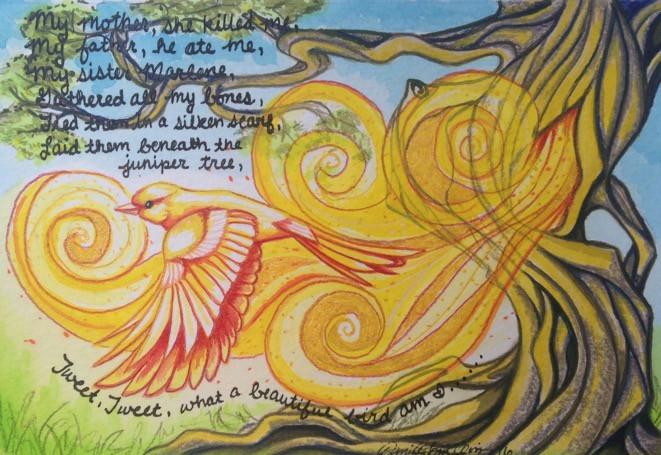 My mother, she killed me,
My father, he ate me,
My sister Marlene,
Gathered all my bones,
Tied them in a silken scarf,
Laid them beneath the
juniper tree,
Tweet, Tweet, what a beautiful bird am I......